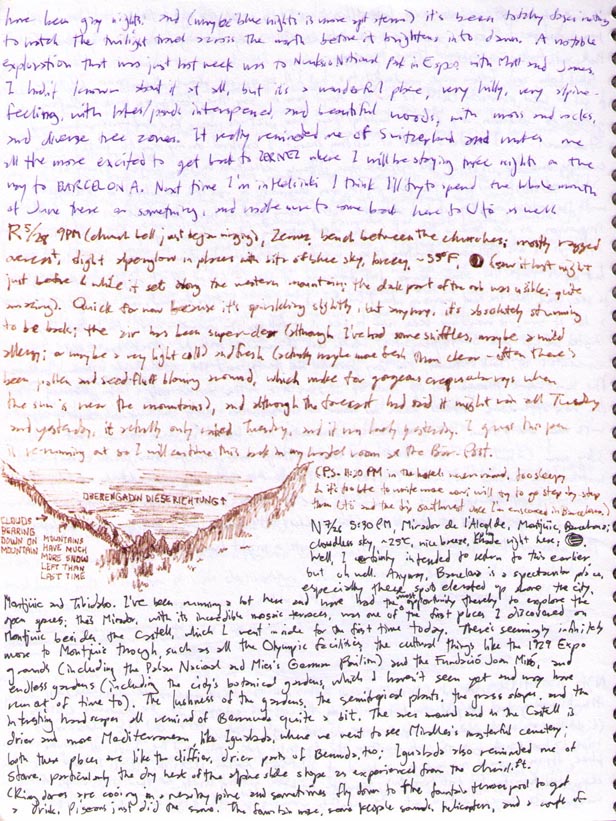 have been gray nights, and (maybe 'blue nights' is more apt term) it's been totally
to watch the twilight travel across the north before it brightens into dawn. A notable
exploration that was just last week was to Nuuksio National Park in Espoo with Matt and James.
I hadn't known about it at all, but it's a wonderful place, very hilly, very alpine-
feeling, with lakes/ponds interspersed, and beautiful woods, with moss and rocks,
and diverse tree zones. It really reminded me of Switzerland and makes me
all the more excited to get back to ZERNEZ where I will be staying three nights on the
way to BARCELONA. Next time I'm in Helsinki I think I'll try to spend the whole month
of June there or something, and make sure to come back here to Utö as well.
R 5/28 9PM (church bell just began ringing), Zernez, bench between the churches; mostly ragged
overcast, slight alpenglow in places with bits of blue sky, breezy, ~55°F, (saw it last night
just before & while it set along the western mountains; the dark part of the orb was visible; quite
amazing). Quick for now because it's sprinkling slightly, but anyway, it's absolutely stunning
to be back; the air has been super-clear (although I've had some sniffles, maybe a mild
allergy; or maybe a very light cold) and fresh (actually maybe more fresh than clear - often there's
been pollen and seed-fluff blowing around, which make for gorgeous crepuscular rays when
the sun is near the mountains), and although the forecast had said it might rain all Tuesday
and yesterday, it actually only rained Tuesday, and it was lovely yesterday. I guess this pen
is running out so I will continue this back in my hotel room at the Bär-Post.
OBERENGADIN DIESE RICHTUNG ↑
CLOUDS
BEARING
DOWN ON
MOUNTAIN
MOUNTAINS
HAVE MUCH
MORE SNOW
LEFT THAN
LAST TIME
(PS - 11:20 PM in the hotel: nevermind, too sleepy
& it's too late to write more now; will try to go step by step
from Utö and the big southwest once I'm ensconced in Barcelona.)
N 7/26 5:30 PM, Mirador de l'Alcalde, Montjuïc, Barcelona;
cloudless sky, ~25°C, nice breeze, right here;
Well, I certainly intended to return to this earlier
but oh well. Anyway, Barcelona is a spectacular place,
especially these spots elevated up above the city,
Montjuïc and Tibidabo. I've been running a lot here and have had the opportunity thereby, to explore the
open spaces; this Mirador, with its incredible mosaic terraces, was one of the first places I discovered on
Montjuïc besides the Castell, which I went inside for the first time today. There's seemingly infinitely
more to Montjuïc though, such as all the Olympic facilities, the cultural things like the 1929 Expo
grounds (including the Palau Nacional and Mies's German Pavilion) and the Fundació Joan Miró, and
endless gardens (including the city's botanical gardens, which I haven't seen yet and may have
run out of time to). The lushness of the gardens, the semitropical plants, the grass slopes, and the
interesting hardscapes all remind of Bermuda quite a bit. The area around and in the Castell is
drier and more Mediterranean, like Igualada, where we went to see Miralles's masterful cemetery;
both these places are like the cliffier, drier parts of Bermuda, too; Igualada also reminded me of
particularly the dry heat of the alpine slope as experienced from the
(Ring doves are cooing in a nearby pine and sometimes fly down to the fountain terrace pool to get
a drink. Pigeons just did the same. The fountain noise, some people sounds, helicopters, and a couple of